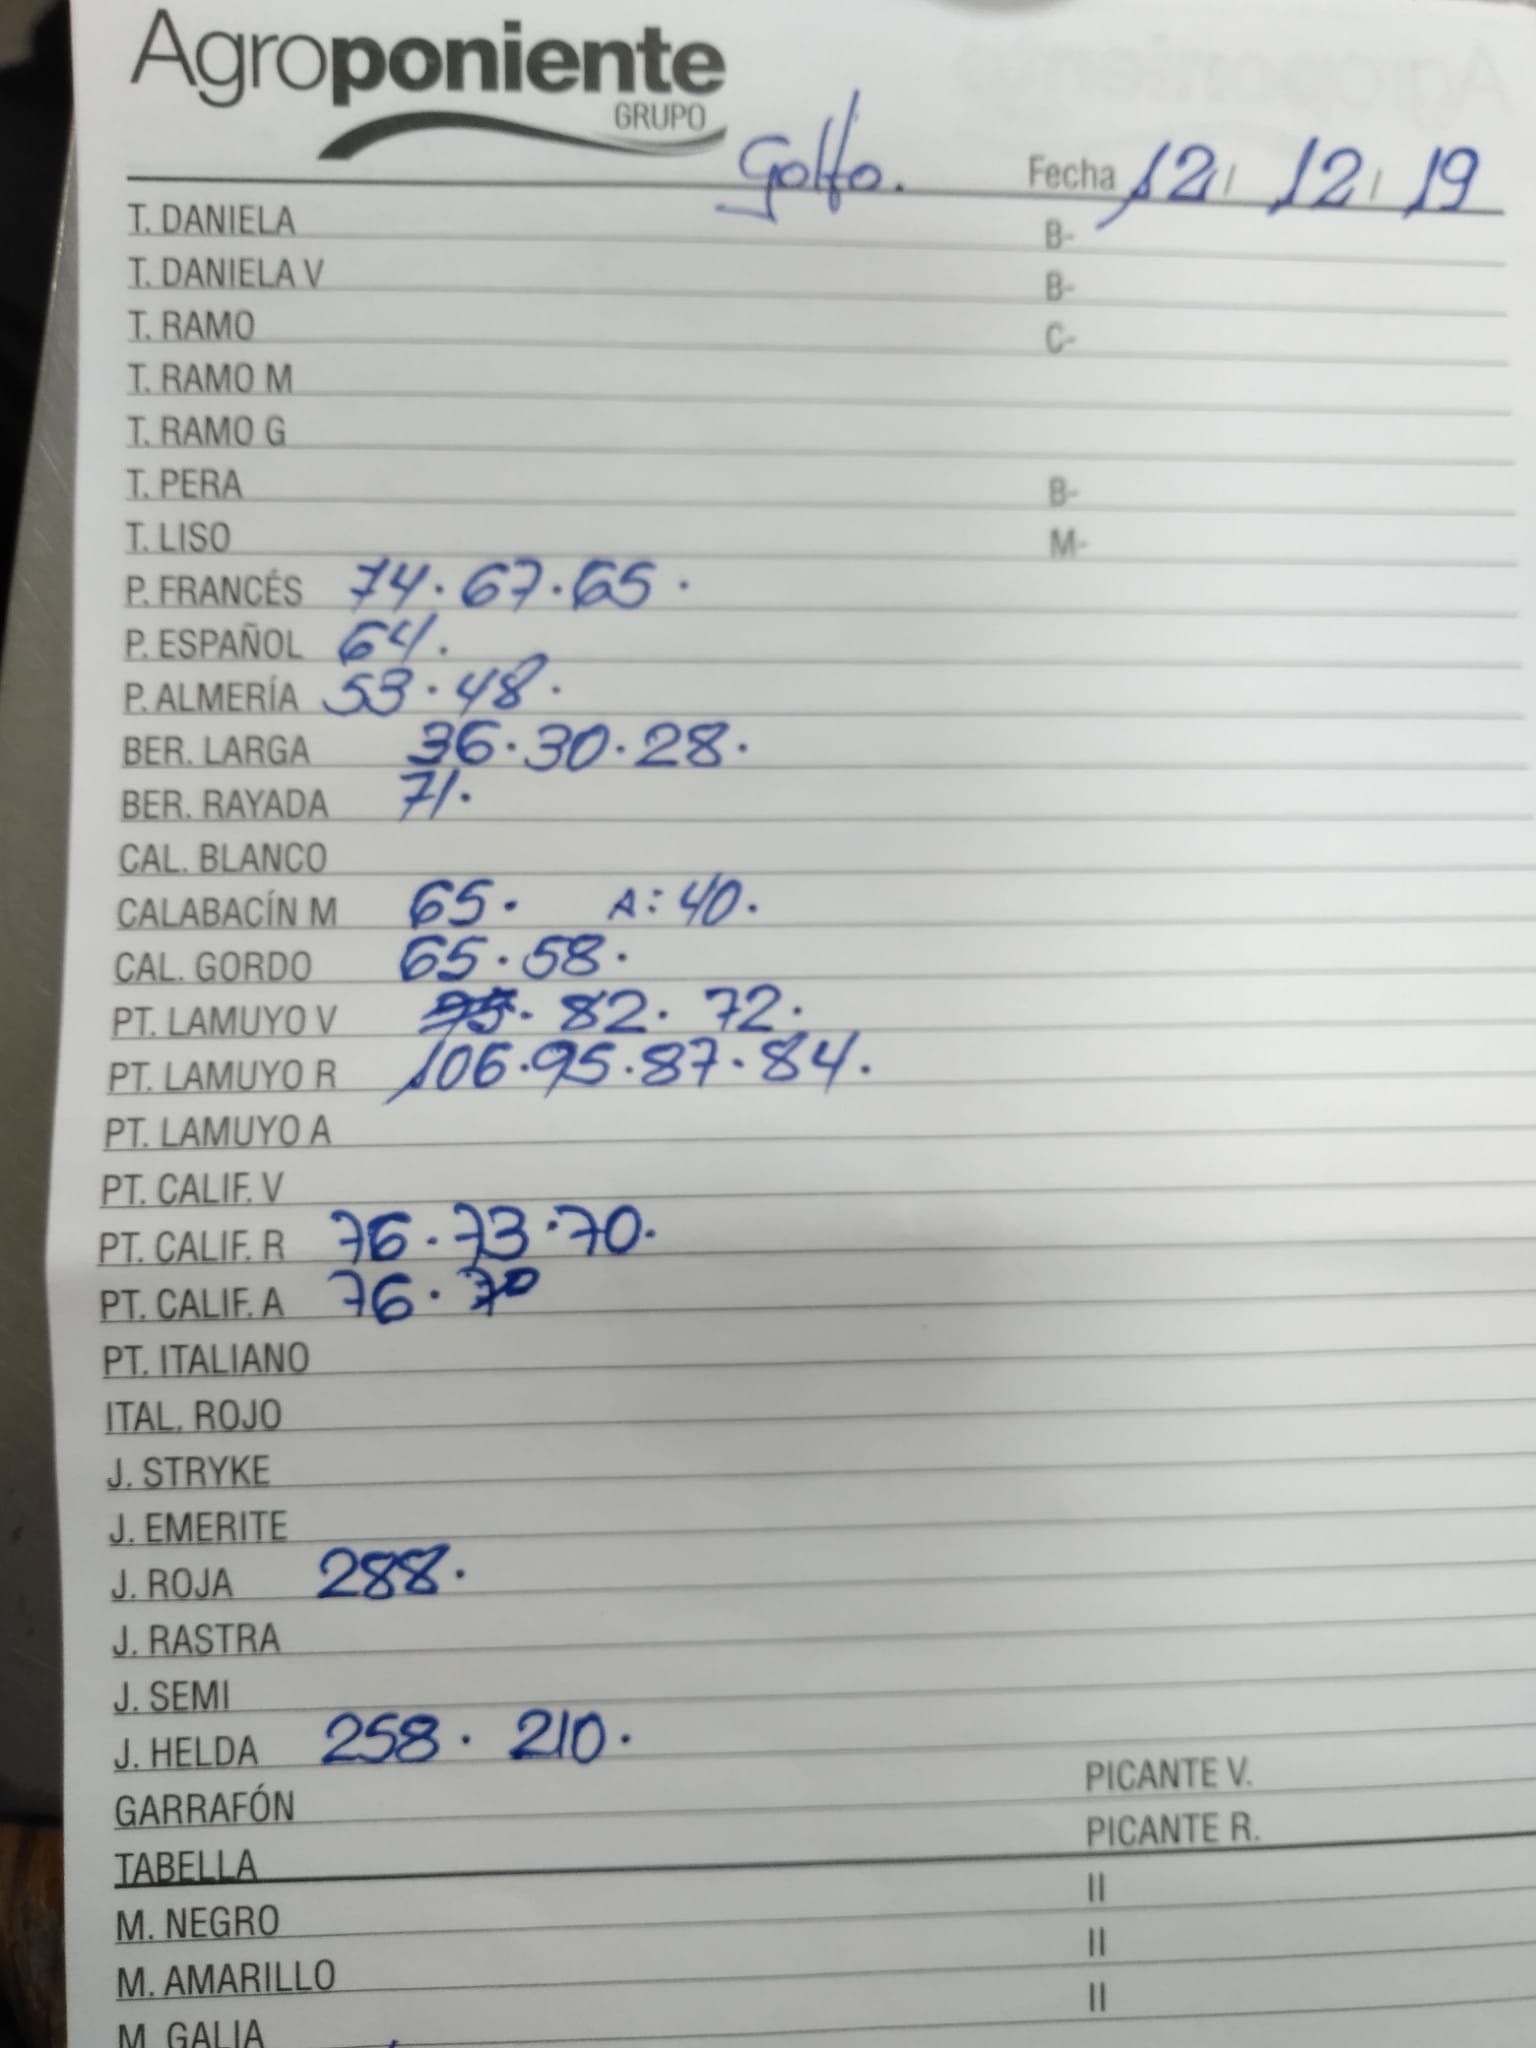 Agroponiente
GRUPO
Golfo. Fecha 12 / 12 / 19
T. DANIELA B-
T. DANIELA V B-
T. RAMO C-
T. RAMO M
T. RAMO G
T. PERA B-
T. LISO M-
P. FRANCÉS 74. 67. 65.
P. ESPAÑOL 64.
P. ALMERÍA 53. 48.
BER. LARGA 36. 30. 28.
BER. RAYADA 71.
CAL. BLANCO
CALABACÍN M 65. A: 40.
CAL. GORDO 65. 58.
PT. LAMUYO V 82. 72.
PT. LAMUYO R 106. 95. 87. 84.
PT. LAMUYO A
PT. CALIF. V
PT. CALIF. R 76. 73. 70.
PT. CALIF. A 76. 70
PT. ITALIANO
ITAL. ROJO
J. STRYKE
J. EMERITE
J. ROJA 288.
J. RASTRA
J. SEMI
J. HELDA 258. 210.
GARRAFÓN PICANTE V.
TABELLA PICANTE R.
M. NEGRO II
M. AMARILLO II
M. GALIA II